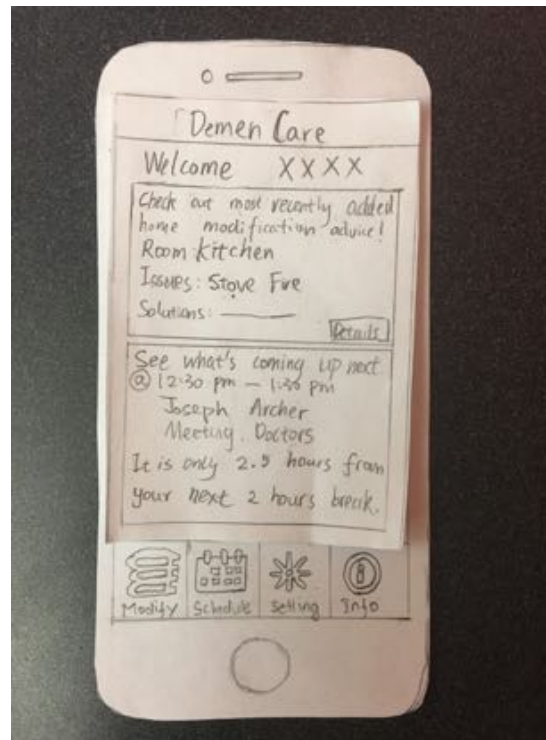 Demen Care
Welcome XXXX
Check out most recently added
home modification advice!
Room: Kitchen
Issues: Stove Fire
Solutions:
Details
See what's coming up next
@ 12:30 pm – 1:30 pm
Joseph Archer
Meeting. Doctors
It is only 2.5 hours from
your next 2 hours break.
Modify Schedule Setting Info